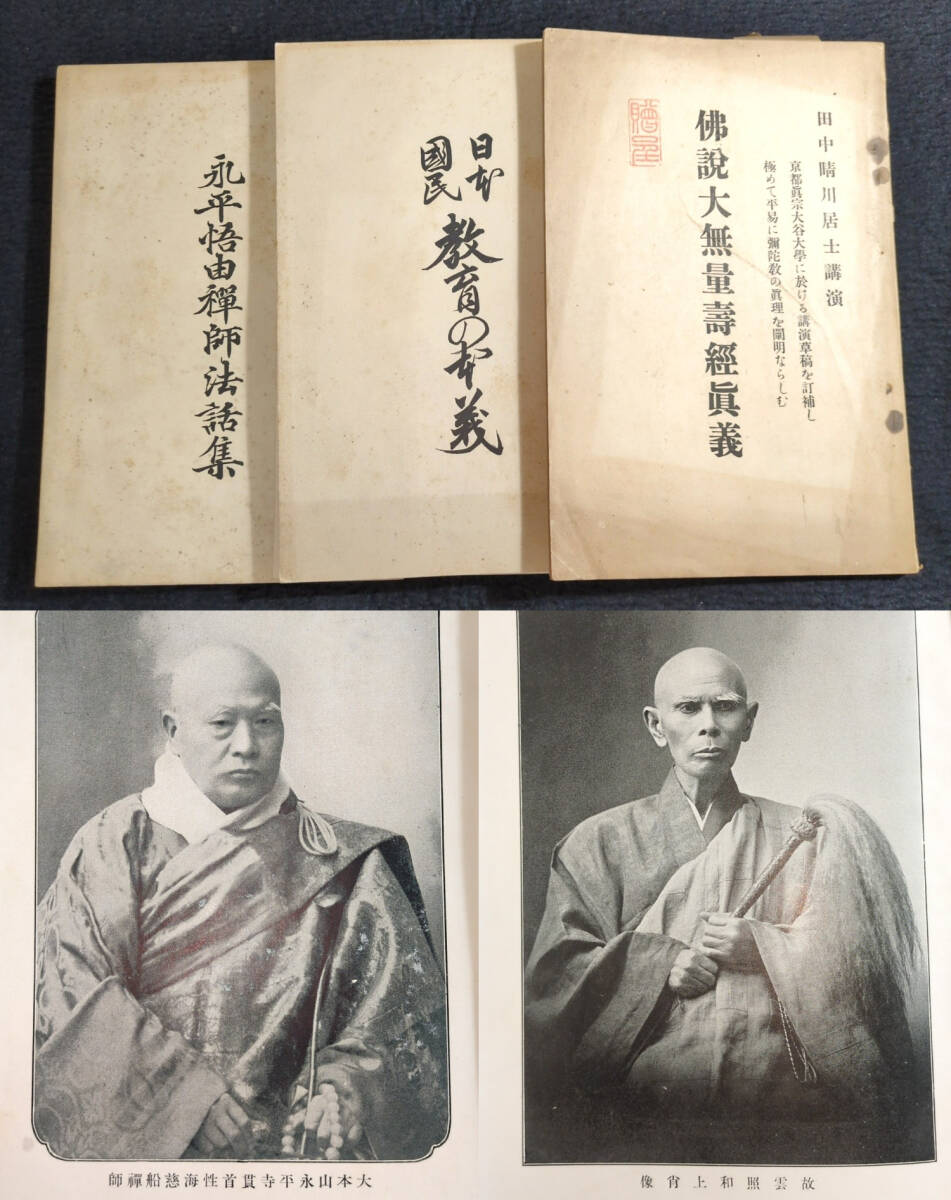 永平悟由禪師法話集
日本
國民
教育の本義
田中晴川居士講演
京都眞宗大谷大學に於ける講演草稿を訂補し
極めて平易に彌陀敎の眞理を闡明ならしむ
佛說大無量壽經眞義
師禪船慈海性首貫寺平永山本大
像肖上和照雲故